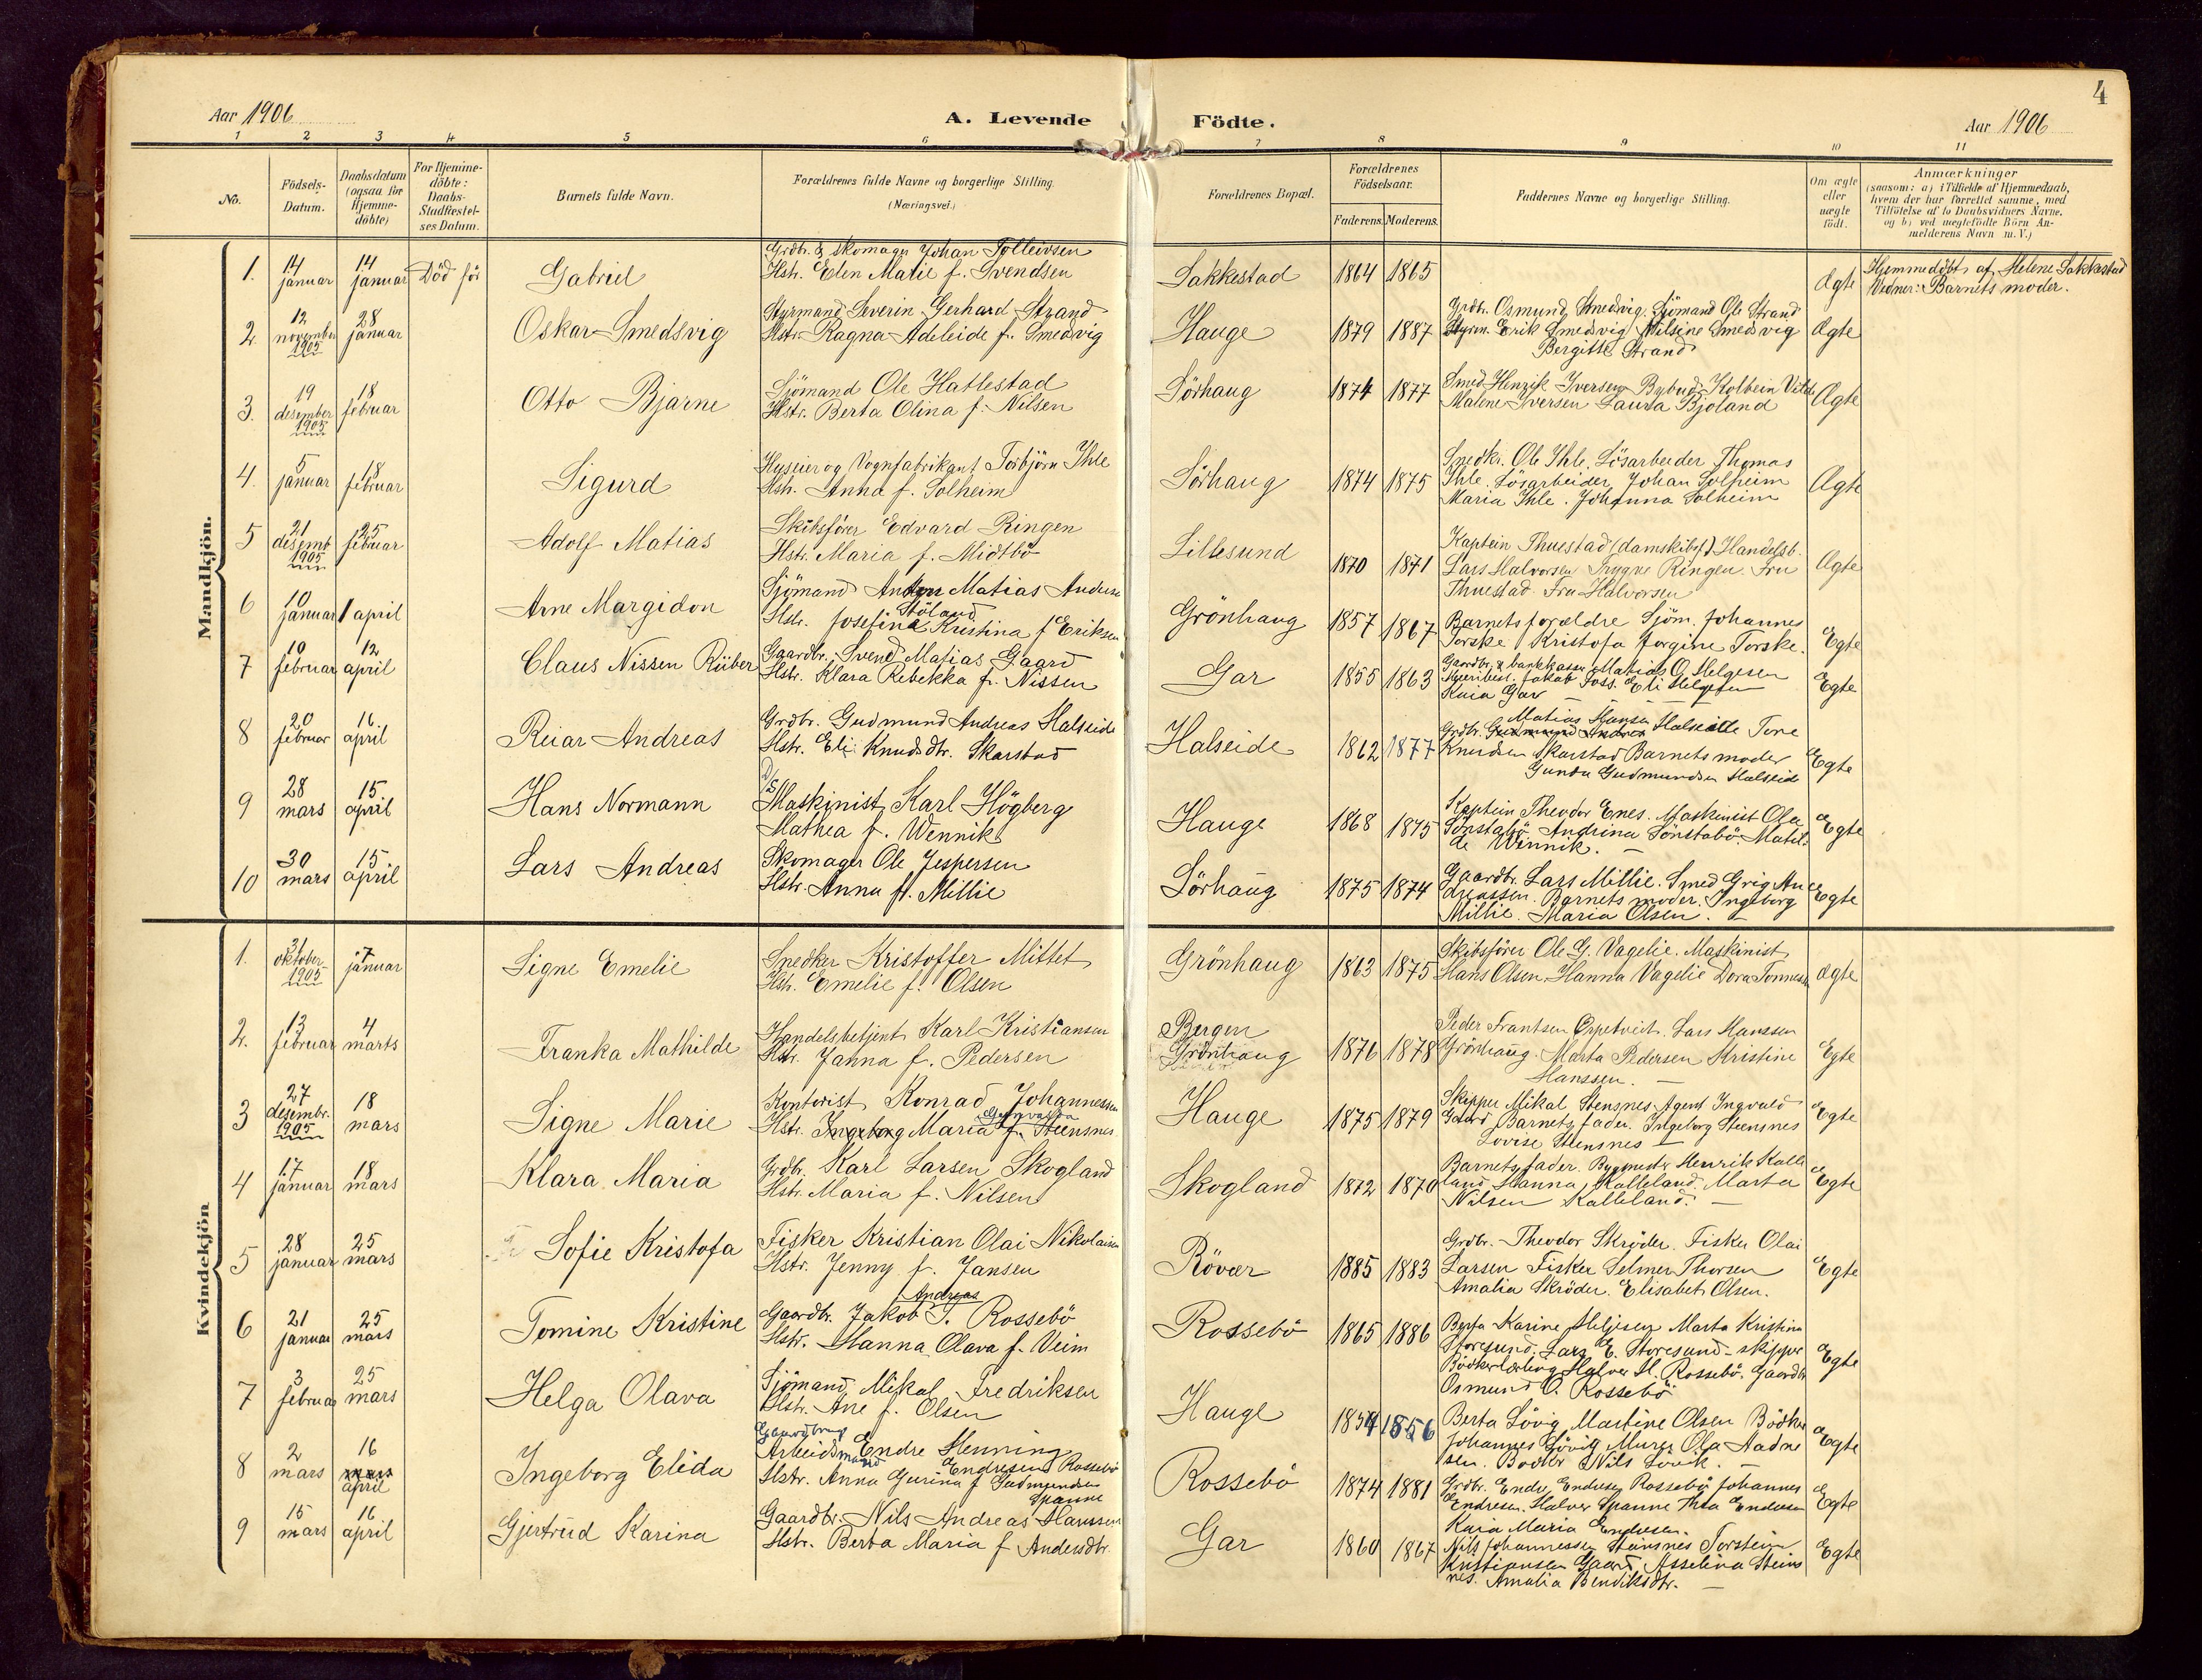 4
Aar 1906 A. Levende Födte. Aar 1906
1 2 3 4 5 6 7 8 9 10 11
No. Födsels-Datum. Daabsdatum (ogsaa for Hjemme-döbte) For Hjemme-döbte: Daabs-Stadfæstel-ses Datum. Barnets fulde Navn. Forældrenes fulde Navne og borgerlige Stilling. (Næringsvei.) Forældrenes Bopæl. Forældrenes Födselsaar. Faderens. Moderens. Faddernes Navne og borgerlige Stilling. Om ægte eller uægte födt. Anmærkninger (saasom: a) i Tilfælde af Hjemmedaab, hvem der har forrettet samme, med Tilföielse af to Daabsvidners Navne, og b) ved uegtefödte Börn An-melderens Navn m. V.)
Mandkjön.
1. 14 januar 14 januar Död för Gabriel
Grdbr. & skomager Johan Tolleivsen
Hstr. Elen Malie f. Svendsen
Sakkestad 1864 1865 Ægte
Hjemmedöbt af Helene Sakkestad
Vidner: Barnets moder.
2. 12 november 1905 28 januar Oskar Smedsvig
Styrmand Severin Gerhard Strand
Hstr. Ragna Adeleide f. Smedvig
Hauge 1879 1887
Grdb. Osmund Smedvig. Sjömand Ole Strand
Styrm. Erik Smedsvig Nilsine Smedsvig
Bergitte Strand
Ægte
3. 19 desember 1905 18 februar Otto Bjarne
Sjömand Ole Hatlestad
Hstr. Berta Olina f. Nilsen
Sörhaug 1874 1877
Smed Henrik Iversen Bybud Kolbein
Malene Iversen Laura Bjoland
Ægte
4. 5 januar 18 februar Sigurd
Huseier og Vognfabrikant Torbjörn Ihle
Hstr. Anna f. Solheim
Sörhaug 1874 1875
Snedkr. Ole Ihle. Lösarbeider Thomas
Ihle. Lösarbeider Johan Solheim
Maria Ihle. Johanna Solheim
Ægte
5 21 desemb 1905 25 februar Adolf Matias
Skibsförer Edvard Ringen
Hstr. Maria f. Midtbö
Lillesund 1870 1871
Kaptein Thuestad (damskibsf.) Handelsb.
Lars Halvorsen Trygve Ringen. Fru
Thuestad. Fru Halvorsen
Ægte
6 10 januar 1 april Arne Margidon
Sjömand Anton Matias Andersen
Stöland
Hstr. Josefine Kristina f Eriksen
Grönhaug 1857 1867
Barnets forældre Sjöm. Johannes
Torske Kristofa Jorgine Torske.
Egte
7 10 februar 12 april Claus Nissen Rüber
Gaardbr. Svend Matias Gaard
Hstr. Klara Rebekka f. Nissen
Gar 1855 1863
Gaardbr. & bankkasser Matias O. Helgesen
Jakob Foss. Eli Helgesen
Kaia Gar
Egte
8 20 februar 16 april Reiar Andreas
Grdbr. Gudmund Andreas Halseide
Hstr. Eli Knudsdtr. Skarstad
Halseide 1862 1877
Matias Hansen
Grdb. Gudmund Andreas Halseide Tore
Knudsen Skarstad Barnets moder
Gunda Gudmundsen Halseide
Egte
9 28 mars 15 april Hans Normann
D/S
Maskinist Karl Högberg
Mathea f. Wennik
Hauge 1868 1875
Kaptein Theodor Enes. Maskinist Ola
Sönstabö Andrina Sönstabö. Matil-
de Wennik.
Egte
10 30 mars 15 april Lars Andreas
Skomager Ole Jespersen
Hstr. Anna f. Millie
Sörhaug 1875 1874
Gaardbr. Lars Millie. Smed Grig An-
dreassen. Barnets moder. Ingeborg
Millie. Maria Olsen.
Egte
Kvindekjön
1. 31 oktober 1905 7 januar Signe Emelie
Snedker Kristoffer Mittet
Hstr. Emelie f. Olsen
Grönhaug 1863 1875
Skibsförer Ole G. Vagelie. Maskinist
Hans Olsen. Hanna Vagelie Dora Tonnesen
Ægte
2. 13 februar 4 marts Franka Mathilde
Handelsbetjent Karl Kristiansen
Hstr. Janna f. Pedersen
Bergen
Grönhaug 1876 1878
Peder Frantsen Erpetveit. Lars Hanssen
Grönhaug. Marta Pedersen Kristine
Hanssen.
Egte
3 27 desembr. 1905 18 mars Signe Marie
Kontorist Konrad Johannessen
Hstr. Ingeborg Maria f. Steensnes
Hauge 1875 1879
Skipper Mikal Stensnes Agent Ingvald
Gaard Barnets fader. Ingeborg Steensnes
Lovise Steensnes
Egte
4 17 januar 18 mars Klara Maria
Grdbr. Karl Larsen Skogland
Hstr. Maria f. Nilsen
Skogland 1872 1870
Barnets fader. Bygmester Henrik Kalle
land Hanna Kalleland. Marta
Nilsen Kalleland.
Egte
5 28 januar 25 mars Sofie Kristofa
Fisker Kristian Olai Nikolaisen
Hstr. Jenny f. Jansen
Rövær 1885 1883
Grdbr. Theodor Skröder. Fisker Olai
Larsen Fisker Selmer Thorsen
Amalia Skröder. Elisabet Olsen.
Egte
6 21 januar 25 mars Tomine Kristine
Andreas
Gaardbr. Jakob T. Rossebö
Hstr. Hanna Olava f. Veim
Rossebö 1865 1886
Berta Karine Heljesen Marta Kristina
Storesund. Lars E. Storesund - skipper
Bödkerlærling Halvor H. Rossebö. Gaardbr
Osmund O. Rossebö
Egte
7 3 februar 25 mars Helga Olava
Sjömand Mikal Fredriksen
Hstr. Ane f. Olsen
Hauge 1854 1856
Berta Lövig Martine Olsen Bödker
Johannes Lövig Murer Ola Aadne
sen. Bödker Nils Lövik.
Egte
8 2 mars 16 mars april Ingeborg Elida
Gaardbrug
Arbeidsmand Endre Henning
Endresen Rossebö
Hstr. Anna Gurina f Gudmundsen
Spanne
Rossebö 1874 1881
Grdbr. Endre Endresen Rossebö Johannes
Endresen. Halvor Spanne Thea Endresen
Kaia Maria Endresen.
Egte
9 15 mars 16 april Gjertrud Karina
Gaardbr. Nils Andreas Hanssen
Hstr. Berta Maria f Andersdtr.
Gar 1860 1867
Nils Johannessen Steinsnes Torstein
Kristiansen Gaard, Asselina Steins
nes. Amalia Bendiksdtr.
Egte